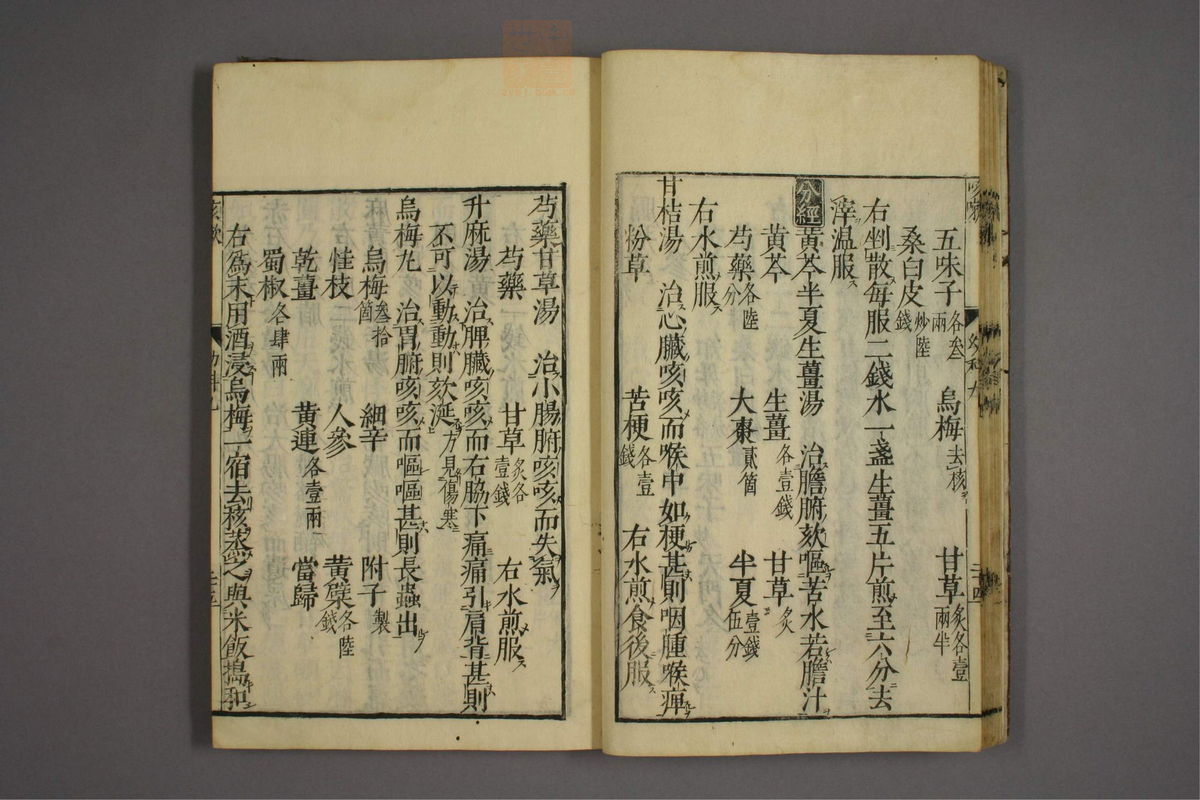 五味子各叁兩　烏梅去核　甘草炙各壹兩半
桑白皮炒陸錢
右剉散每服二錢水一盞生薑五片煎至六分去
滓温服
分經黃芩半夏生薑湯　治膽腑欬嘔苦水若膽汁
黃芩　生薑各壹錢　甘草炙
芍藥各陸分　大棗貳箇　半夏壹錢伍分
右水煎服
甘桔湯　治心臟咳咳而喉中如梗甚則咽腫喉痺
粉草　苦梗各壹錢　右水煎食後服
芍藥甘草湯　治小腸腑咳咳而失氣
芍藥　甘草炙各壹錢　右水煎服
升麻湯　治脾臟咳咳而右脇下痛痛引肩背甚則
不可以動動則欬涎方見傷寒
烏梅丸　治胃腑咳咳而嘔嘔甚則長蟲出
烏梅叁拾箇　細辛　附子製
桂枝　人參　黃蘗各陸錢
乾薑　黃連各壹兩　當歸
蜀椒各肆兩
右爲末用酒浸烏梅一宿去核蒸之與米飯搗和